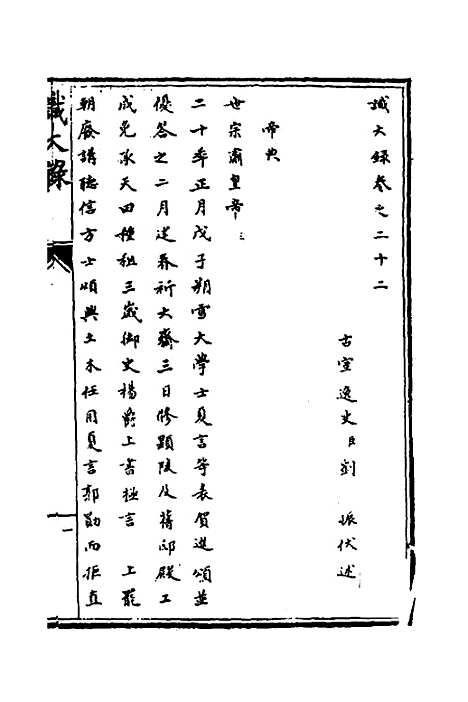 識大錄卷之二十二
古宣逸史臣劉　振伏述
帝典
世宗肅皇帝三
二十年正月戊子朔雪大學士夏言等表賀進頌並
優答之二月建春祈大齋三日修顯陵及舊邸殿工
成免承天田種租三歲御史楊爵上書極言　上罷
朝廢講聽信方士頌興土木任用夏言郭勛而拒直
識大錄
一